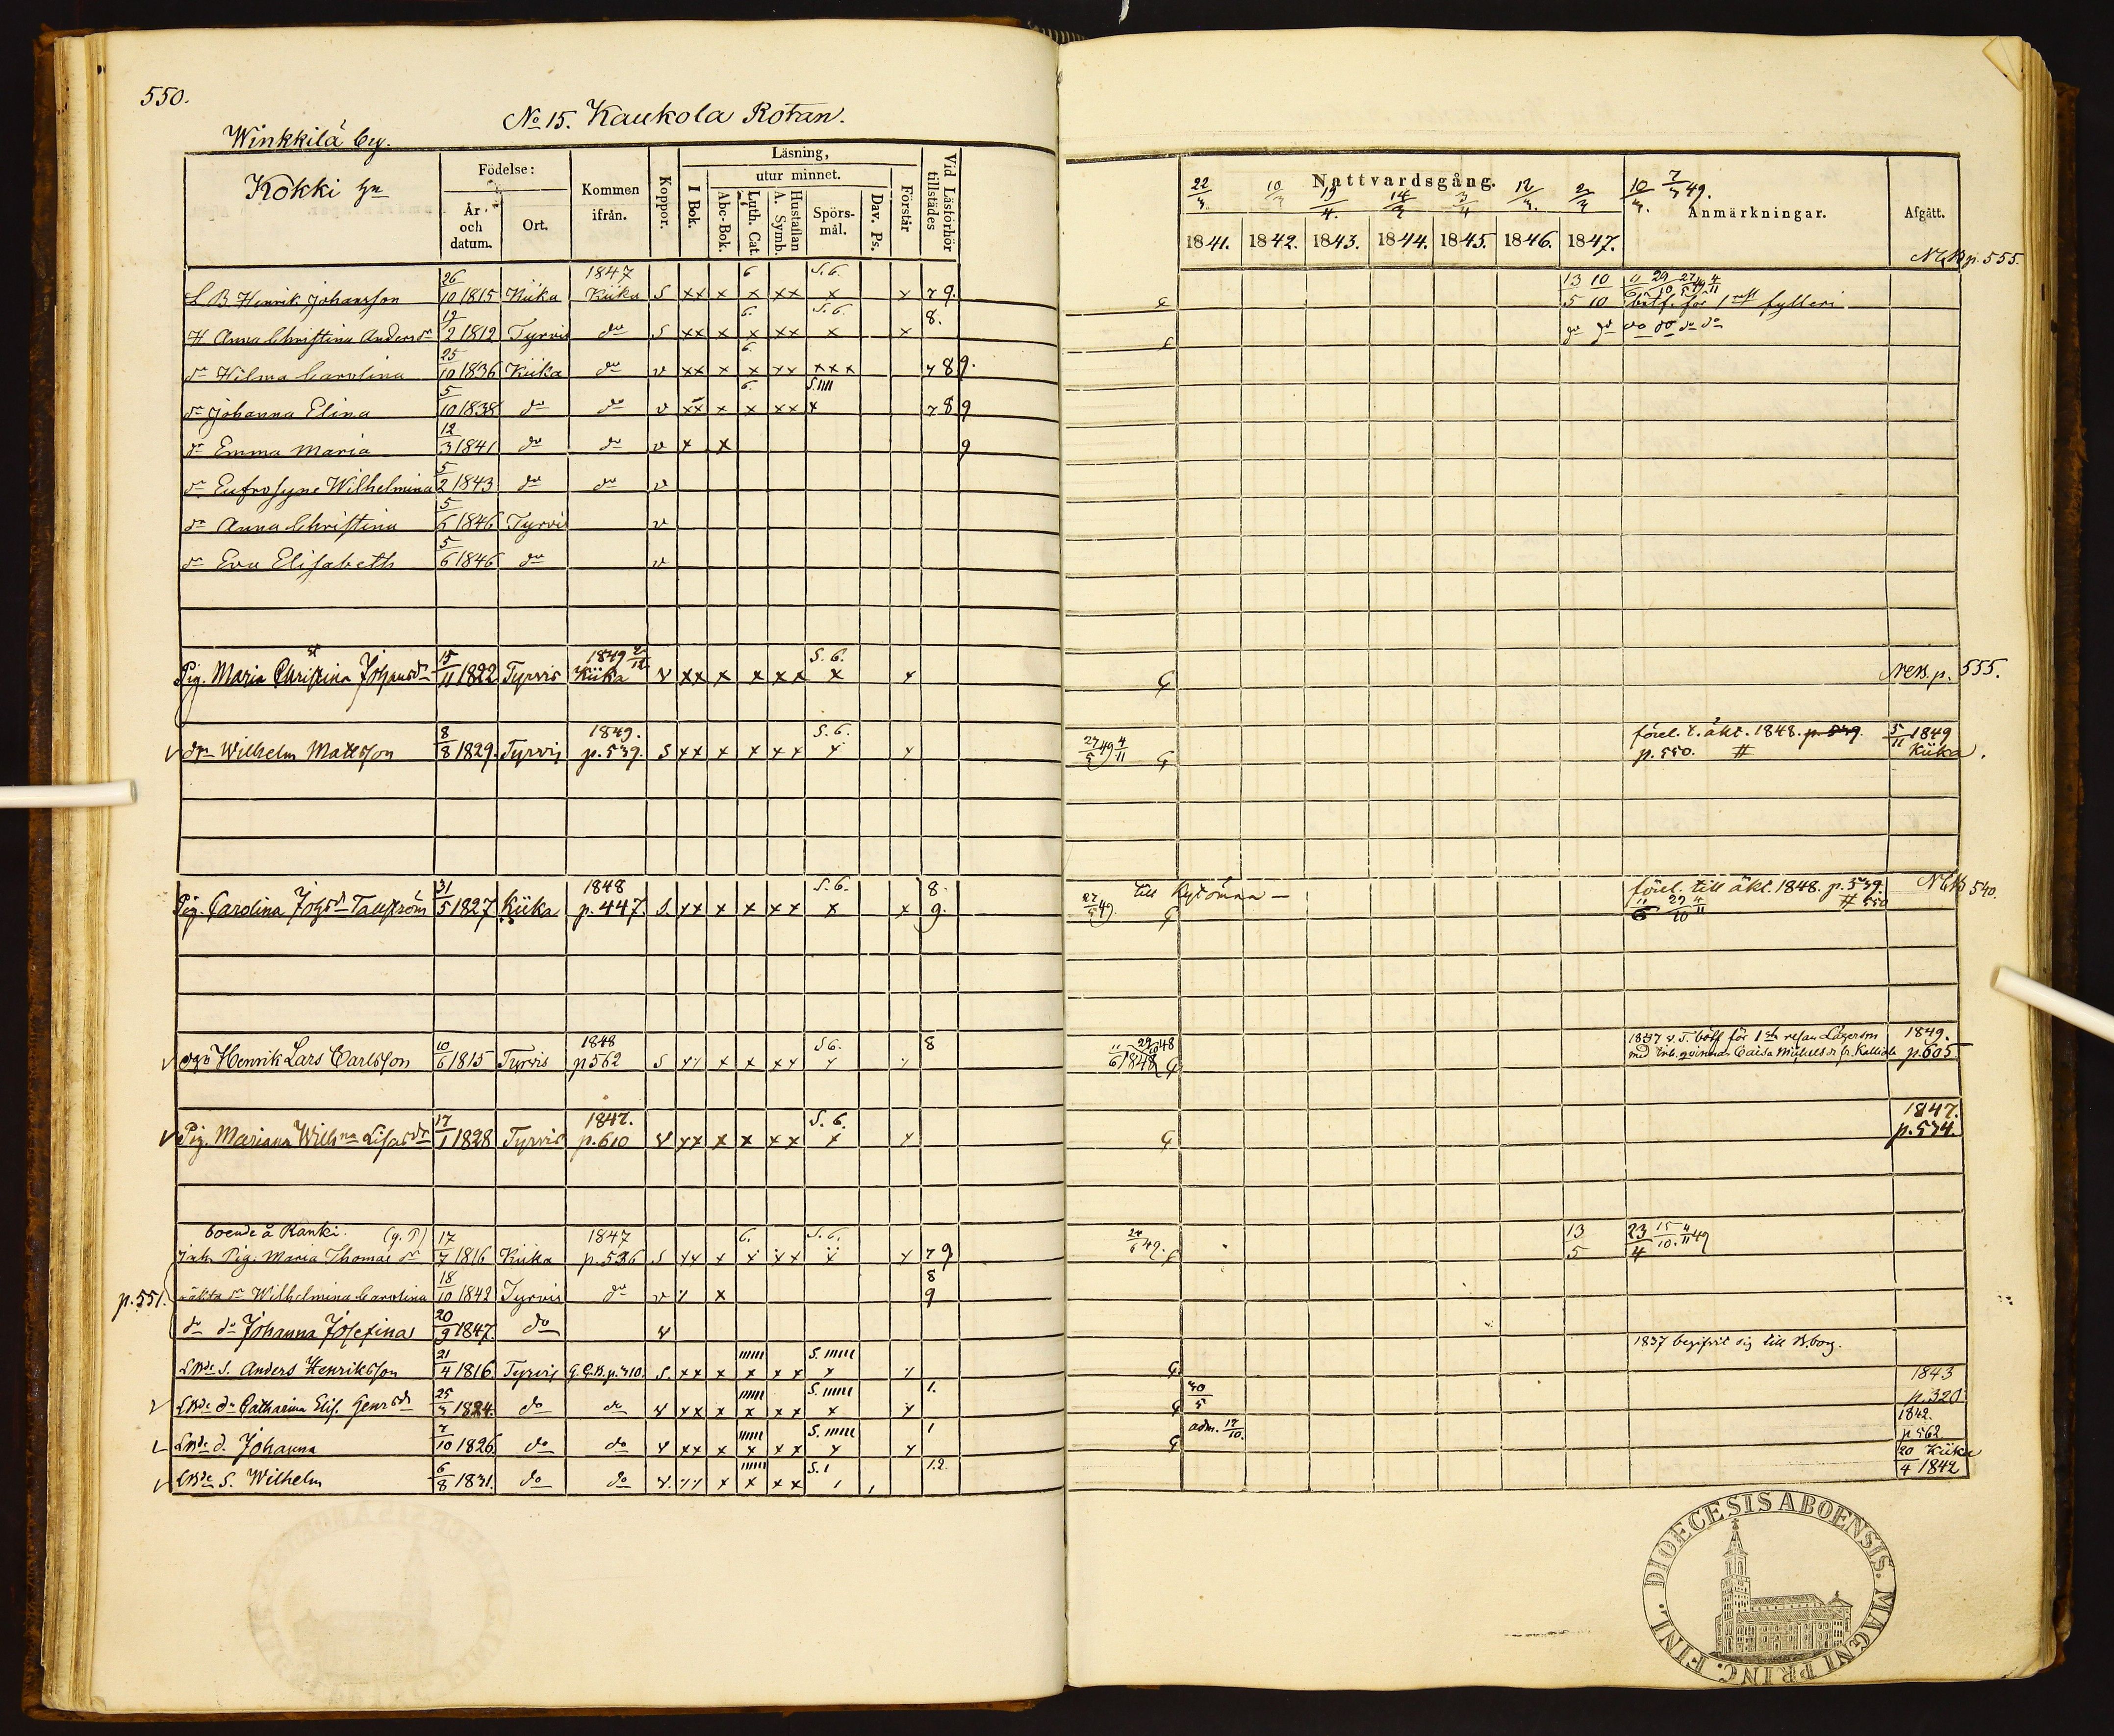 550.
No 15. Kaukola Rotan.
Winkkilä by.
Kokki hn
Födelse:
År och datum.
Ort.
Kommen ifrån.
Koppor.
Läsning,
I Bok.
utur minnet.
Abc-Bok.
Luth. Cat.
Hustaflan A. Symb.
Spörsmål.
Dav. Ps.
Förstår
Vid Läsförhör tillstädes
Nattvardsgång.
22/3 10/3 19/4. 14/3 3/4 12/3. 2/3 10/3. 7/3 49.
1841. 1842. 1843. 1844. 1845. 1846. 1847.
Anmärkningar.
Afgått.
L B Henrik Johansson 26/10 1815 Kiika 1847 Kiika S xx x 6 x xx S.6. x x 7 9. 13/5 10/10 11/6 29/10 27/5 49 4/11 bötf. för 1 fylleri NLB p. 555.
H Anna Christina Andersdr 12/2 1812 Tyrvis do S xx x 6. x xx S.6. x x 8. do do do do do do
dr Wilma Carolina 25/10 1836 Kiika do v xx x 6. x xx xxx 7 8 9.
dr Johanna Elina 5/10 1838 do do v xx x 6. x xx S.IIII x 7 8 9
dr Emma Maria 12/3 1841 do do v x x 9
dr Eufrosyne Wilhelmina 5/2 1843 do do v
dr Anna Christina 5/6 1846 Tyrvis v
dr Eva Elisabeth 5/6 1846 do v
Pig. Maria Christina Johansdr 15/11 1822 Tyrvis 1849 Kiika v xx x x xx S.6. x x p. 555.
drn Wilhelm Mattsson 8/8 1829. Tyrvis 1849. p. 539. S xx x x xx S.6. x x 27/5 49 4/11 förel. t. äkt. 1848. p. 539. p. 550. # 5/11 1849 Kiika.
Pig. Carolina Johsdr Tallström 31/5 1827 Kiika 1848 p. 447 S. xx x x xx S.6. x x 8. 9. 27/5 49. till förel. till äkt. 1848. p. 539. # 550 11/6 29/10 4/11 NLB 540.
Henrik Lars Carlsson 10/6 1815 Tyrvis 1848 p 562 S xx x x xx S6. x x 8 11/6 1848 29/10 48 1847 v. T. bötf för 1 resan Lägersm med Caisa Michelsdr fr. Kalliala 1849. p. 605
Pig. Mariana Wilhna Lisasdr 17/1 1828 Tyrvis 1847. p. 610 v xx x x xx S.6. x x 1847. p. 534.
boende å Ranki.
Inh. Pig. Maria Thomasdr 17/7 1816 Kiika 1847 p. 536 S xx x 6. x xx S.6. x x 7 9 24/6 49. 13/5 23/4 15/10. 4/11 49
p. 551. oäkta dr Wilhelmina Carolina 18/10 1842 Tyrvis do v x x 8 9
do do Johanna Josefina 20/9 1847. do v
S. Anders Henriksson 21/4 1816. Tyrvis G.C.B. p. 310. S. xx x IIIII x xx S. IIIII x x 1837 begifvit sig till B.borg.
dr Catharina Elis. Henrsdr 25/3 1824. do do v xx x IIIII x xx S. IIIII x x 1. 30/5 1843 p. 320.
d. Johanna 7/10 1826. do do v xx x IIIII x xx S. IIIII x x 1 adm. 17/10. 1842. p 562.
S. Wilhelm 6/8 1831. do do v. xx x IIIII x xx S.1 1.2. 20/4 Kiika 1842
DIOECESIS ABOENSIS. MAGNI PRINC. FINL.